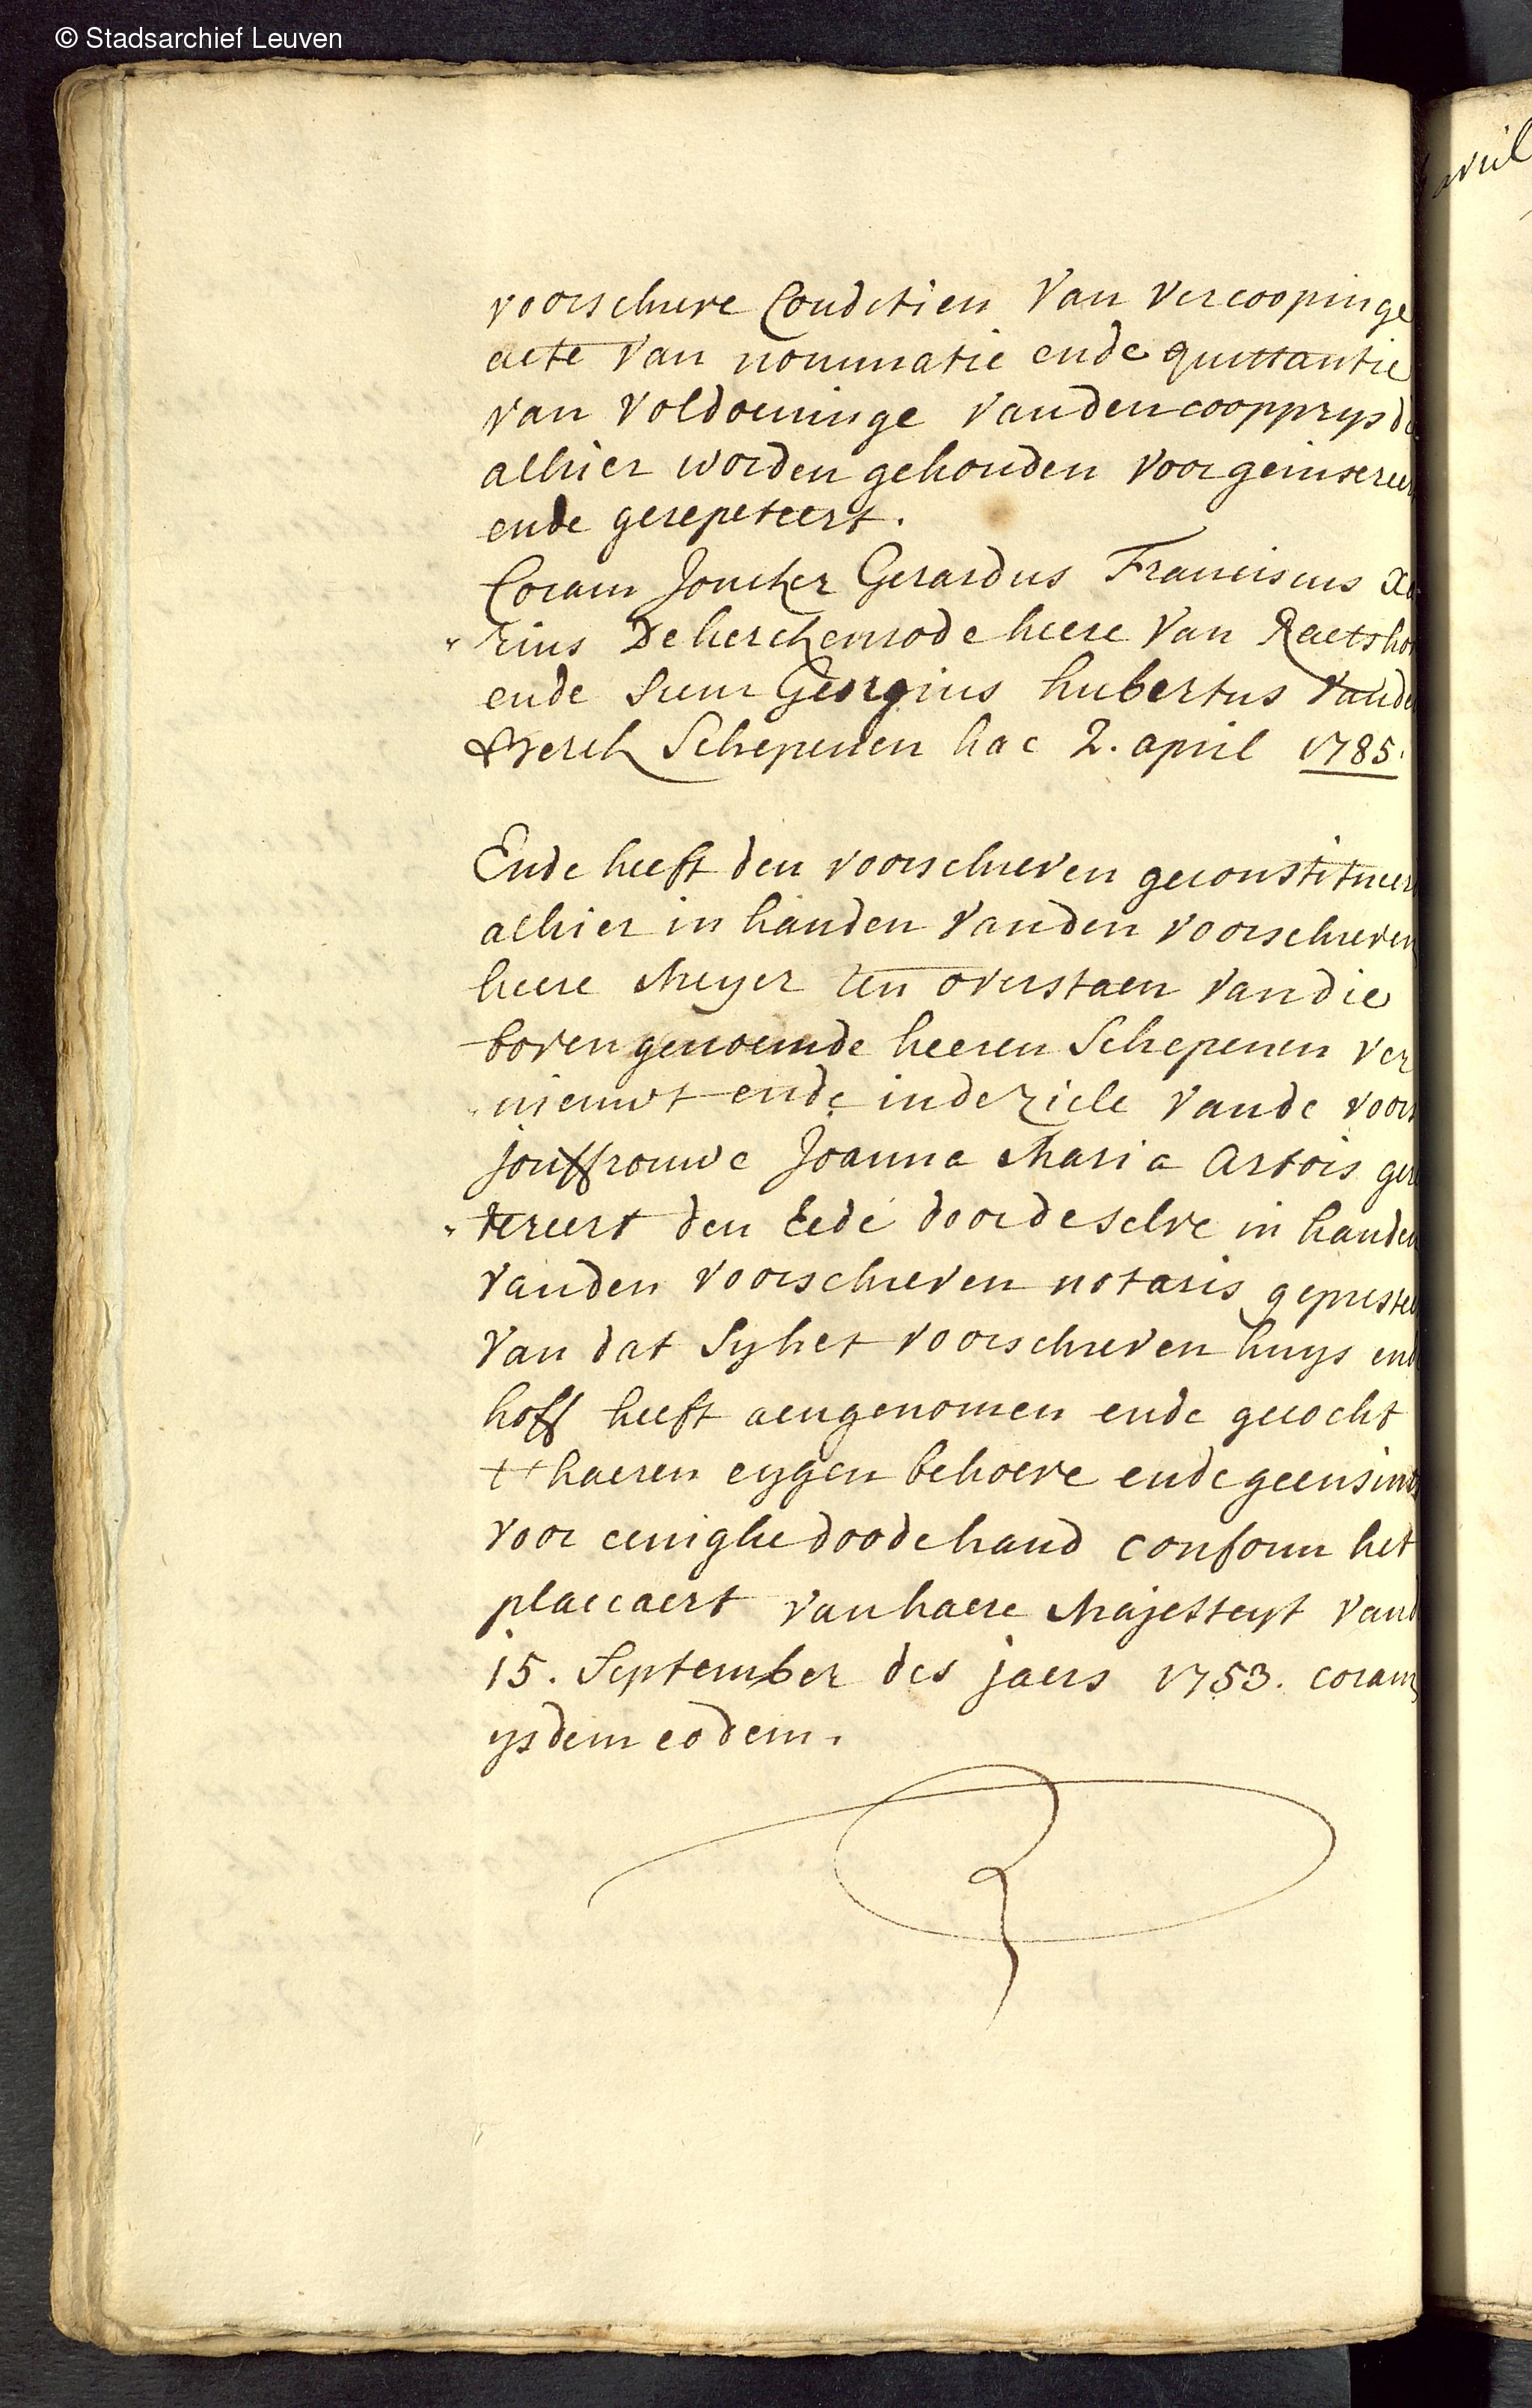 © Stadsarchief Leuven
voorschreve Conditien van vercoopinge
acte van nominatie ende quittantie
van voldoeninge vanden coopprys
alhier worden gehouden voor geinsereert
ende gerepeteert.
Coram Joncker Gerardus Franciscus
rius De herckenrode heere van
ende Sieur Georgius hubertus vanden
Schepenen hac 2. april 1785.
Ende heeft den voorschreven geconstitueerden
alhier in handen vanden voorschreven
heere Meyer ten overstaen van die
boven genoemde heeren Schepenen ver
nieuwt ende inde ziele vande voors
jouffrouwe Joanna Maria Artois gere
tereert den Eede door deselve in handen
vanden voorschreven notaris gepresteert
van dat Sy het voorschreven huys ende
hoff heeft aengenomen ende gecocht
tt haeren eygen behoeve ende geensints
voor eenighe doode hand conform het
placcaert van haere Majesteyt vanden
15. September des jaers 1753. coram
ysdem eodem.
april